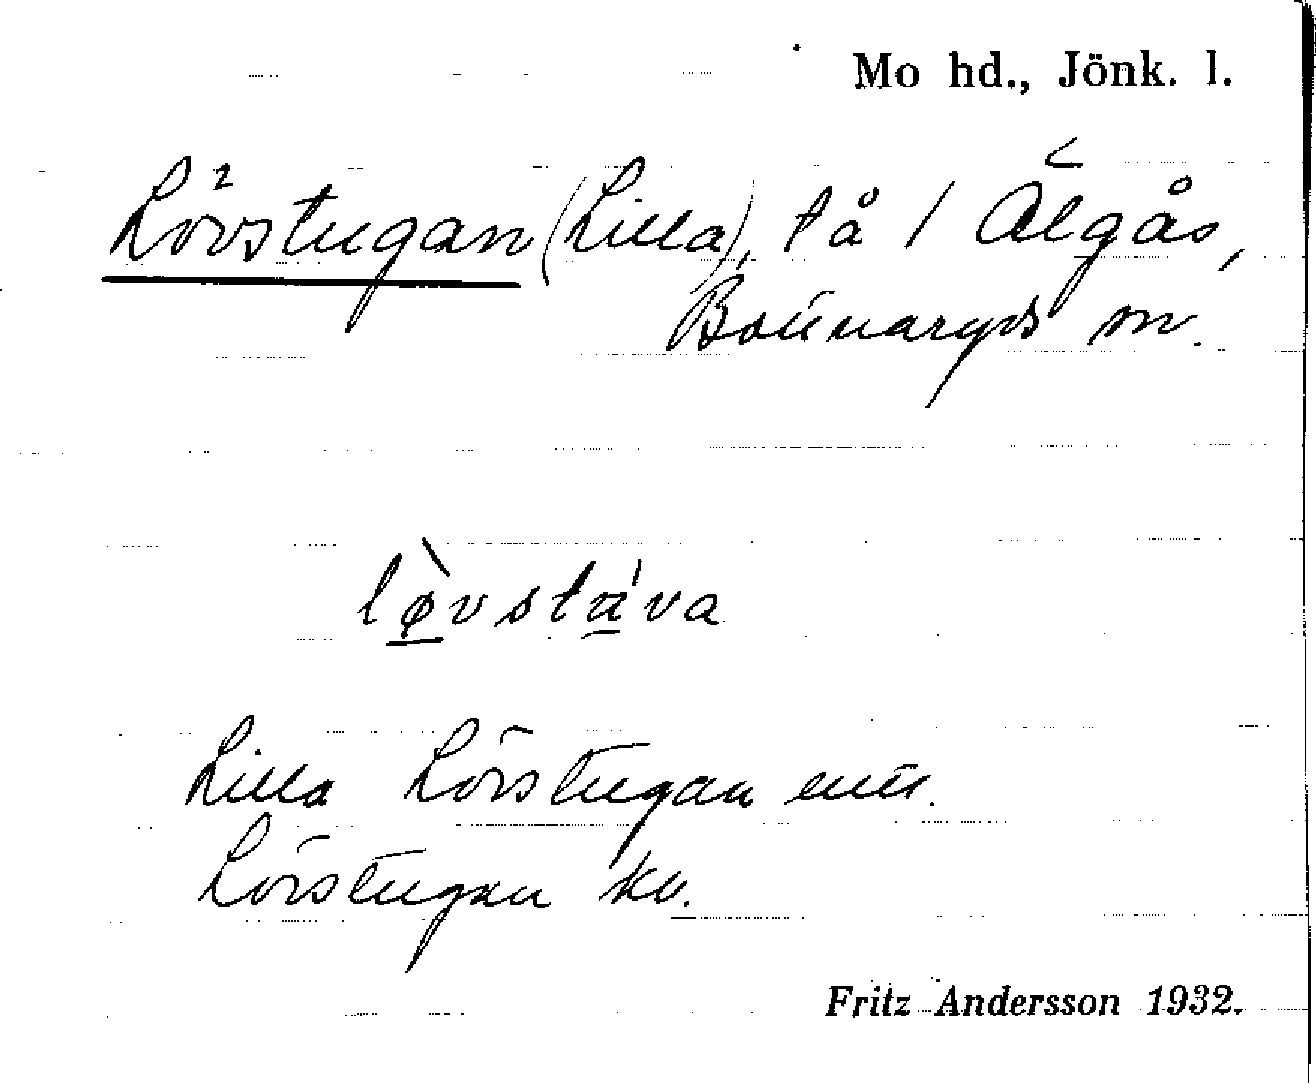 Mo hd., Jönk. l.
Lövstugan (Lilla), lå / Älgås,
Bottnaryds sn.
lø̀vstu̇va
Lilla Lövstugan
Lövstugan kv.
Fritz Andersson 1932.